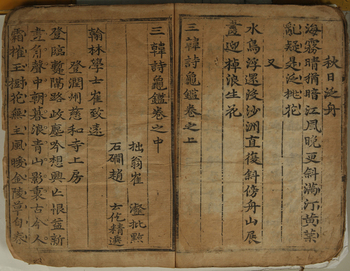 秋日泛舟
海霧晴猶暗江風晚更斜滿汀黃葉
亂疑是泛桃花
又
水鳥浮還沒沙洲直復斜傍舟山展
畫迎棹浪生花
三韓詩龜鑑卷之上
三韓詩龜鑑卷之中
拙翁崔 瀣批點
石磵趙 云仡精選
翰林學士崔致遠
登潤州慈和寺上房
登臨暫隔路岐塵吟想興亡恨益新
畫角聲中朝暮浪青山影裏古今人
霜摧玉樹花無主風暖金陵草自春